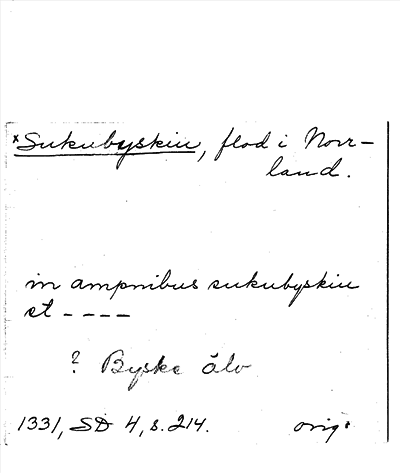 ×Sukubyskiu, flod i Norr-
land.
in ampnibus sukubyskiu
et ----
? Byske älv
1331, SD 4, s. 214. orig.